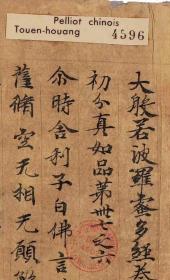 Pelliot chinois
Touen-houang
4596
大般若波羅蜜多經卷
初分真如品第卌七之六
尒時舍利子白佛言
薩脩空无相无願